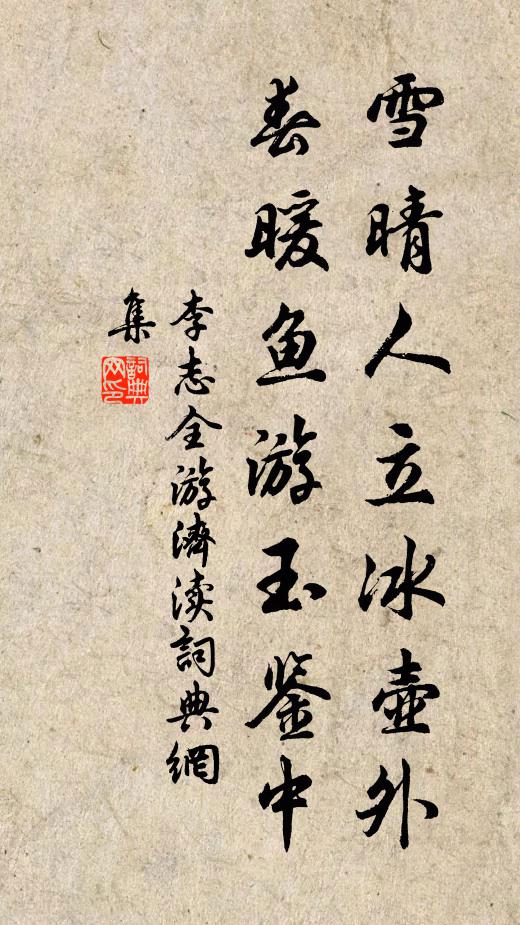 雪晴人立冰壶外
春暖鱼游玉鉴中
李志全游濟渎詞典網
集
詞典
网印